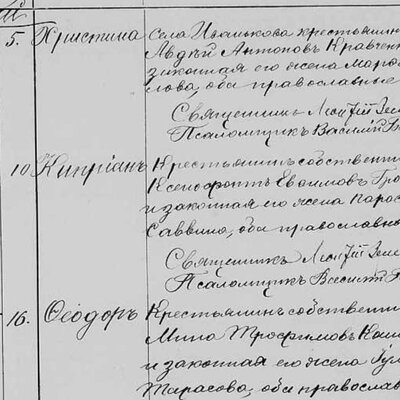 5. Христина Села Иванькова крестьянин
Авдѣй Антоновъ Кравчен
законная его жена
слова, оба православные
Священникъ
Псаломщикъ Василій
10 Кипріанъ Крестьянинъ собственни
Ксенофонтъ Евфимовъ Гро
и законная его жена Парас
Саввина, оба православны
Священникъ
Псаломщикъ Василій
16. Ѳеодоръ Крестьянинъ собственни
Мина Трофимовъ
и законная его жена Іул
Тарасова, оба православ